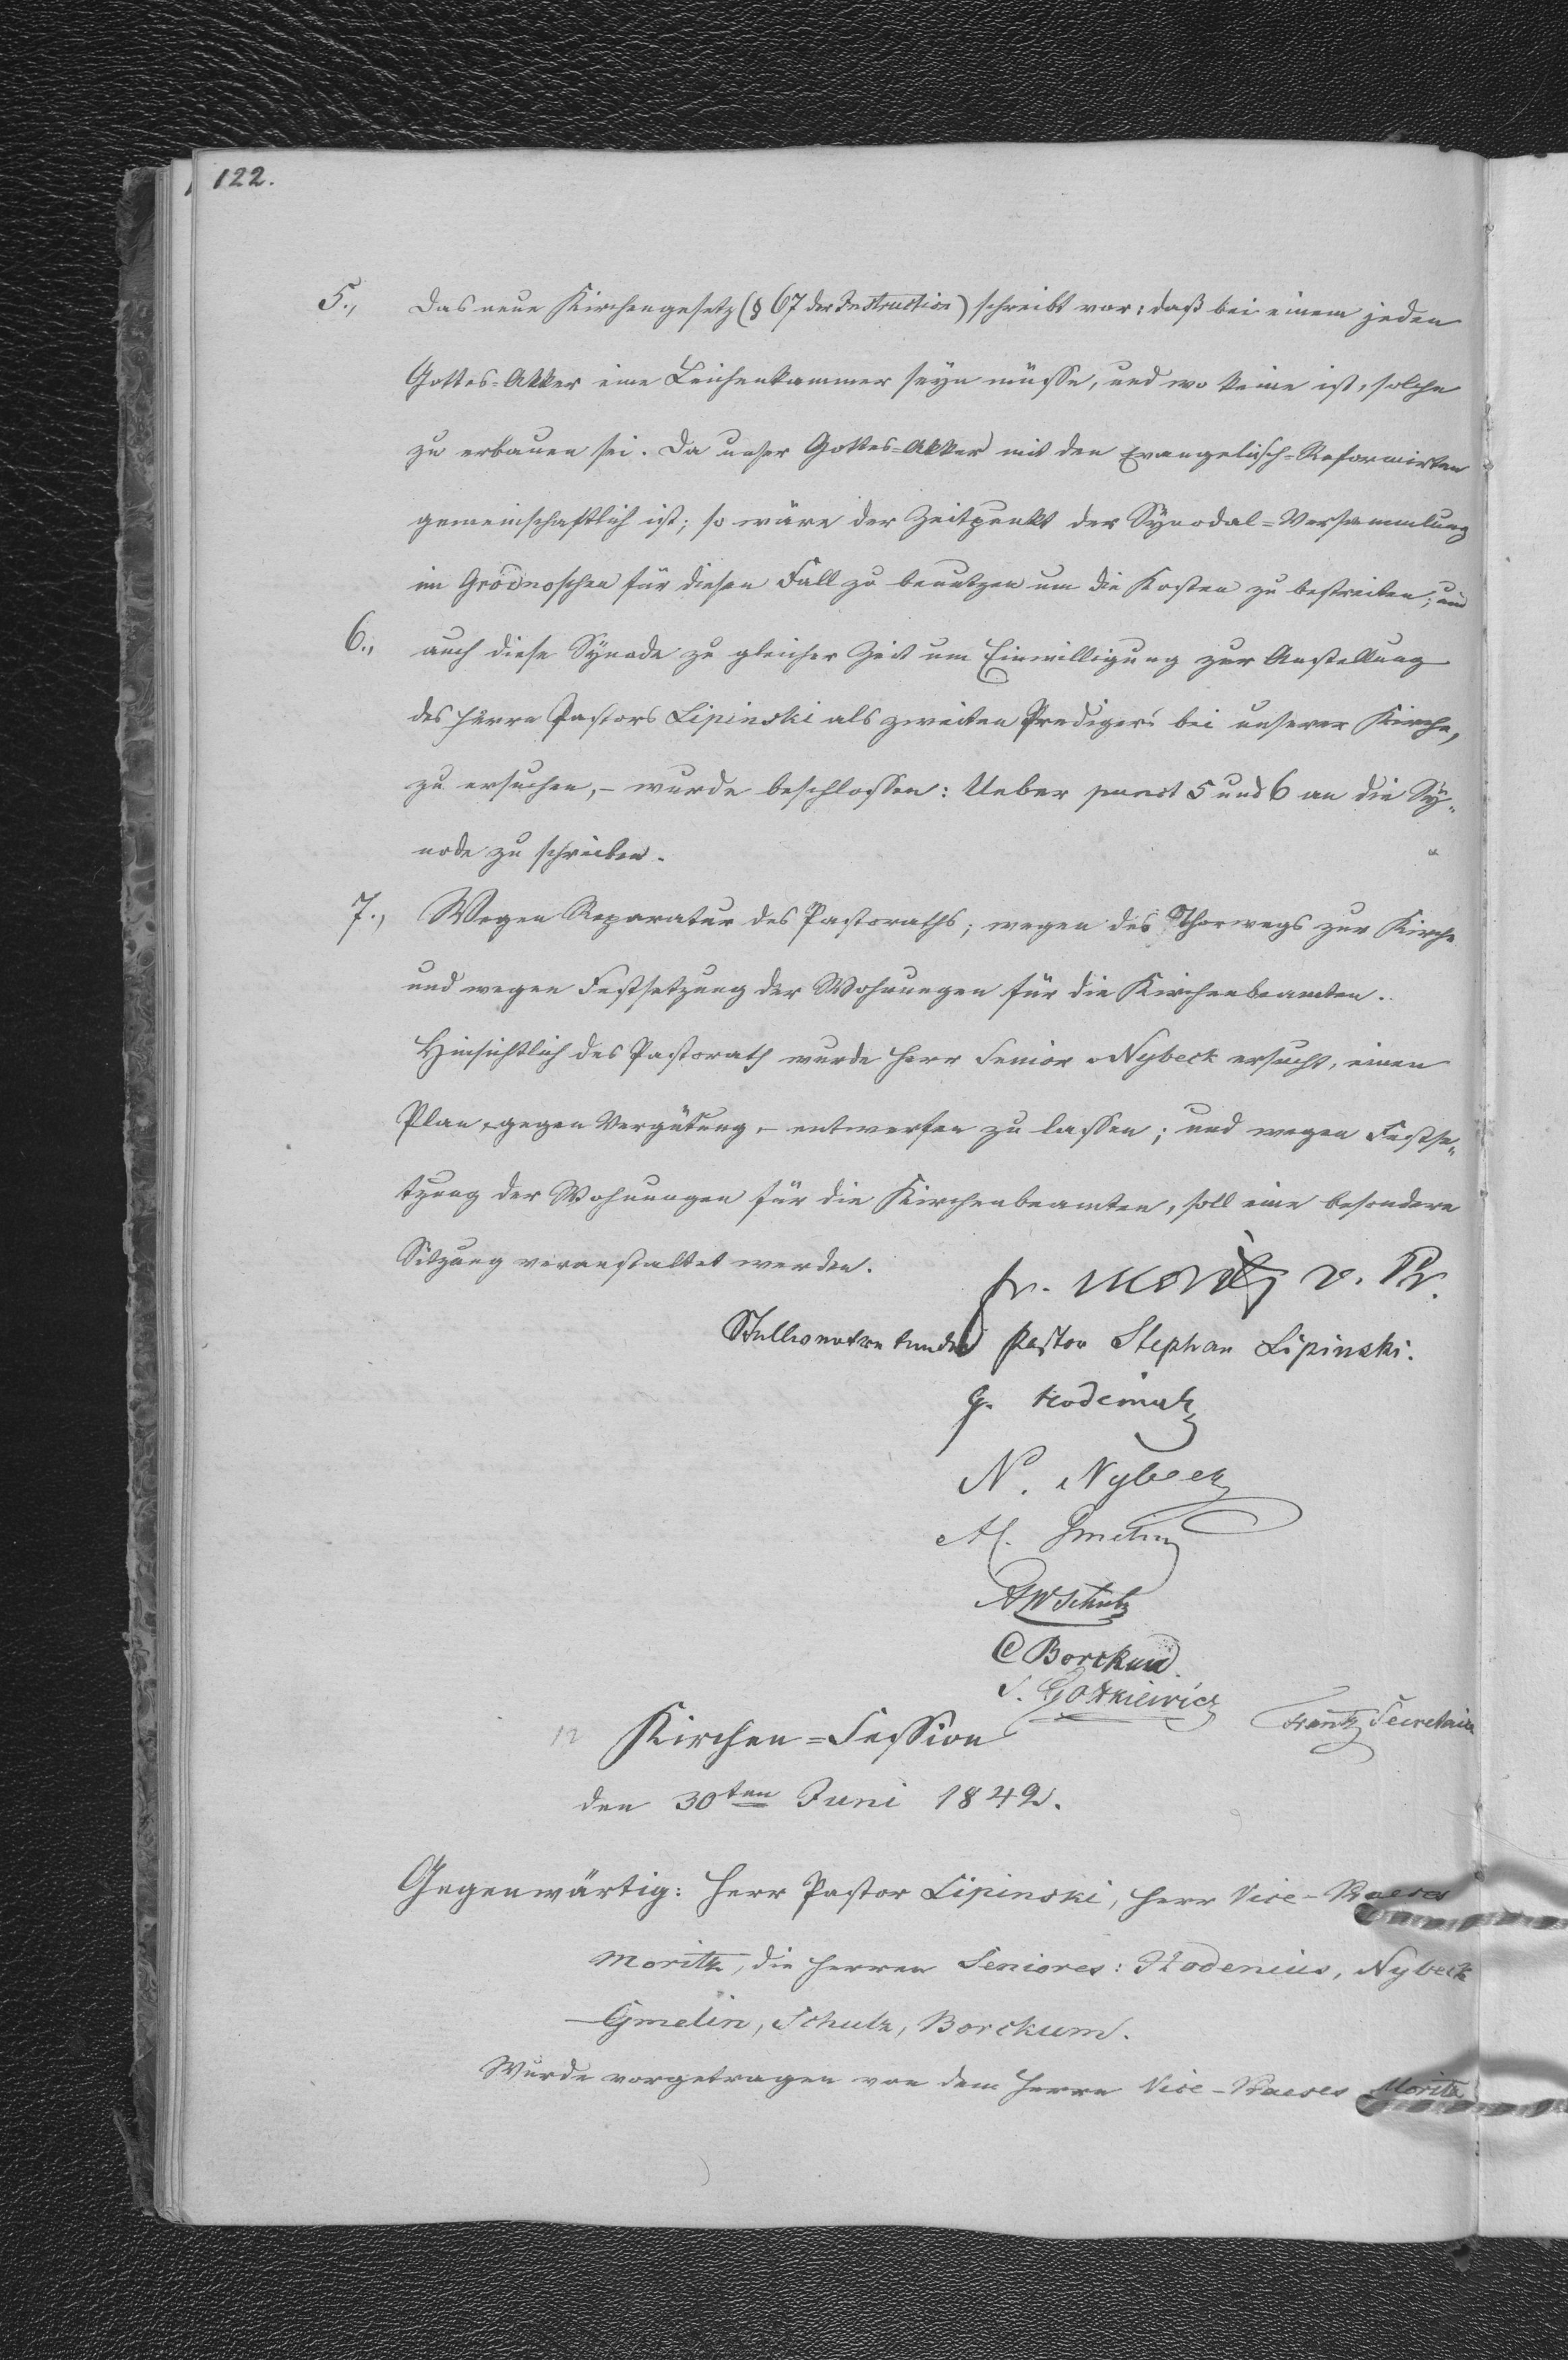 122.
5., Das neue Kirchengesetz (§ 67 der Instruction) schreibt vor: daß bei einem jeden
Gottes-Akker eine Leichenkammer seyn müsse, und wo keine ist, solche
zu erbauen sei. Da unser Gottes-Akker mit den Evangelisch-Reformirten
gemeinschaftlich ist; so wäre der Zeitpunkt der Synodal-Versammlung
im Grodnoschen für diesen Fall zu benutzen um die Kosten zu bestreiten; und
6., auch diese Synode zu gleicher Zeit um Einwilligung zur Anstellung
des Herrn Pastors Lipinski als zweiten Prediger bei unserer Kirche,
zu ersuchen, – wurde beschlossen: Ueber punct 5 und 6 an die Sy„
node zu schreiben.
7., Wegen Reparatur des Pastoraths; wegen des Thorwegs zur Kirche
und wegen Festsetzung der Wohnungen für die Kirchenbeamten.
Hinsichtlich des Pastorath wurde Herr Senior Nybeck ersucht, einen
Plan, gegen Vergütung, – entwerfen zu lassen; und wegen Festse„
tzung der Wohnungen für die Kirchenbeamten, soll eine besondere
Sitzung veranstaltet werden.
Fr. Moritz v. Pr.
Stellvertretender Pastor Stephan Lipinski.
N. Nybeck
Gmelin
AW Schulz
C Borckum.
Frantz Secretair
12 Kirchen-Session
den 30ten Juni 1842.
Gegenwärtig: Herr Pastor Lipinski, Herr Vice-Praeses
Moritz, die Herren Seniores: Hodenius, Nybeck
Gmelin, Schulz, Borckum.
Wurde vorgetragen von dem Herrn Vice-Praeses Moritz